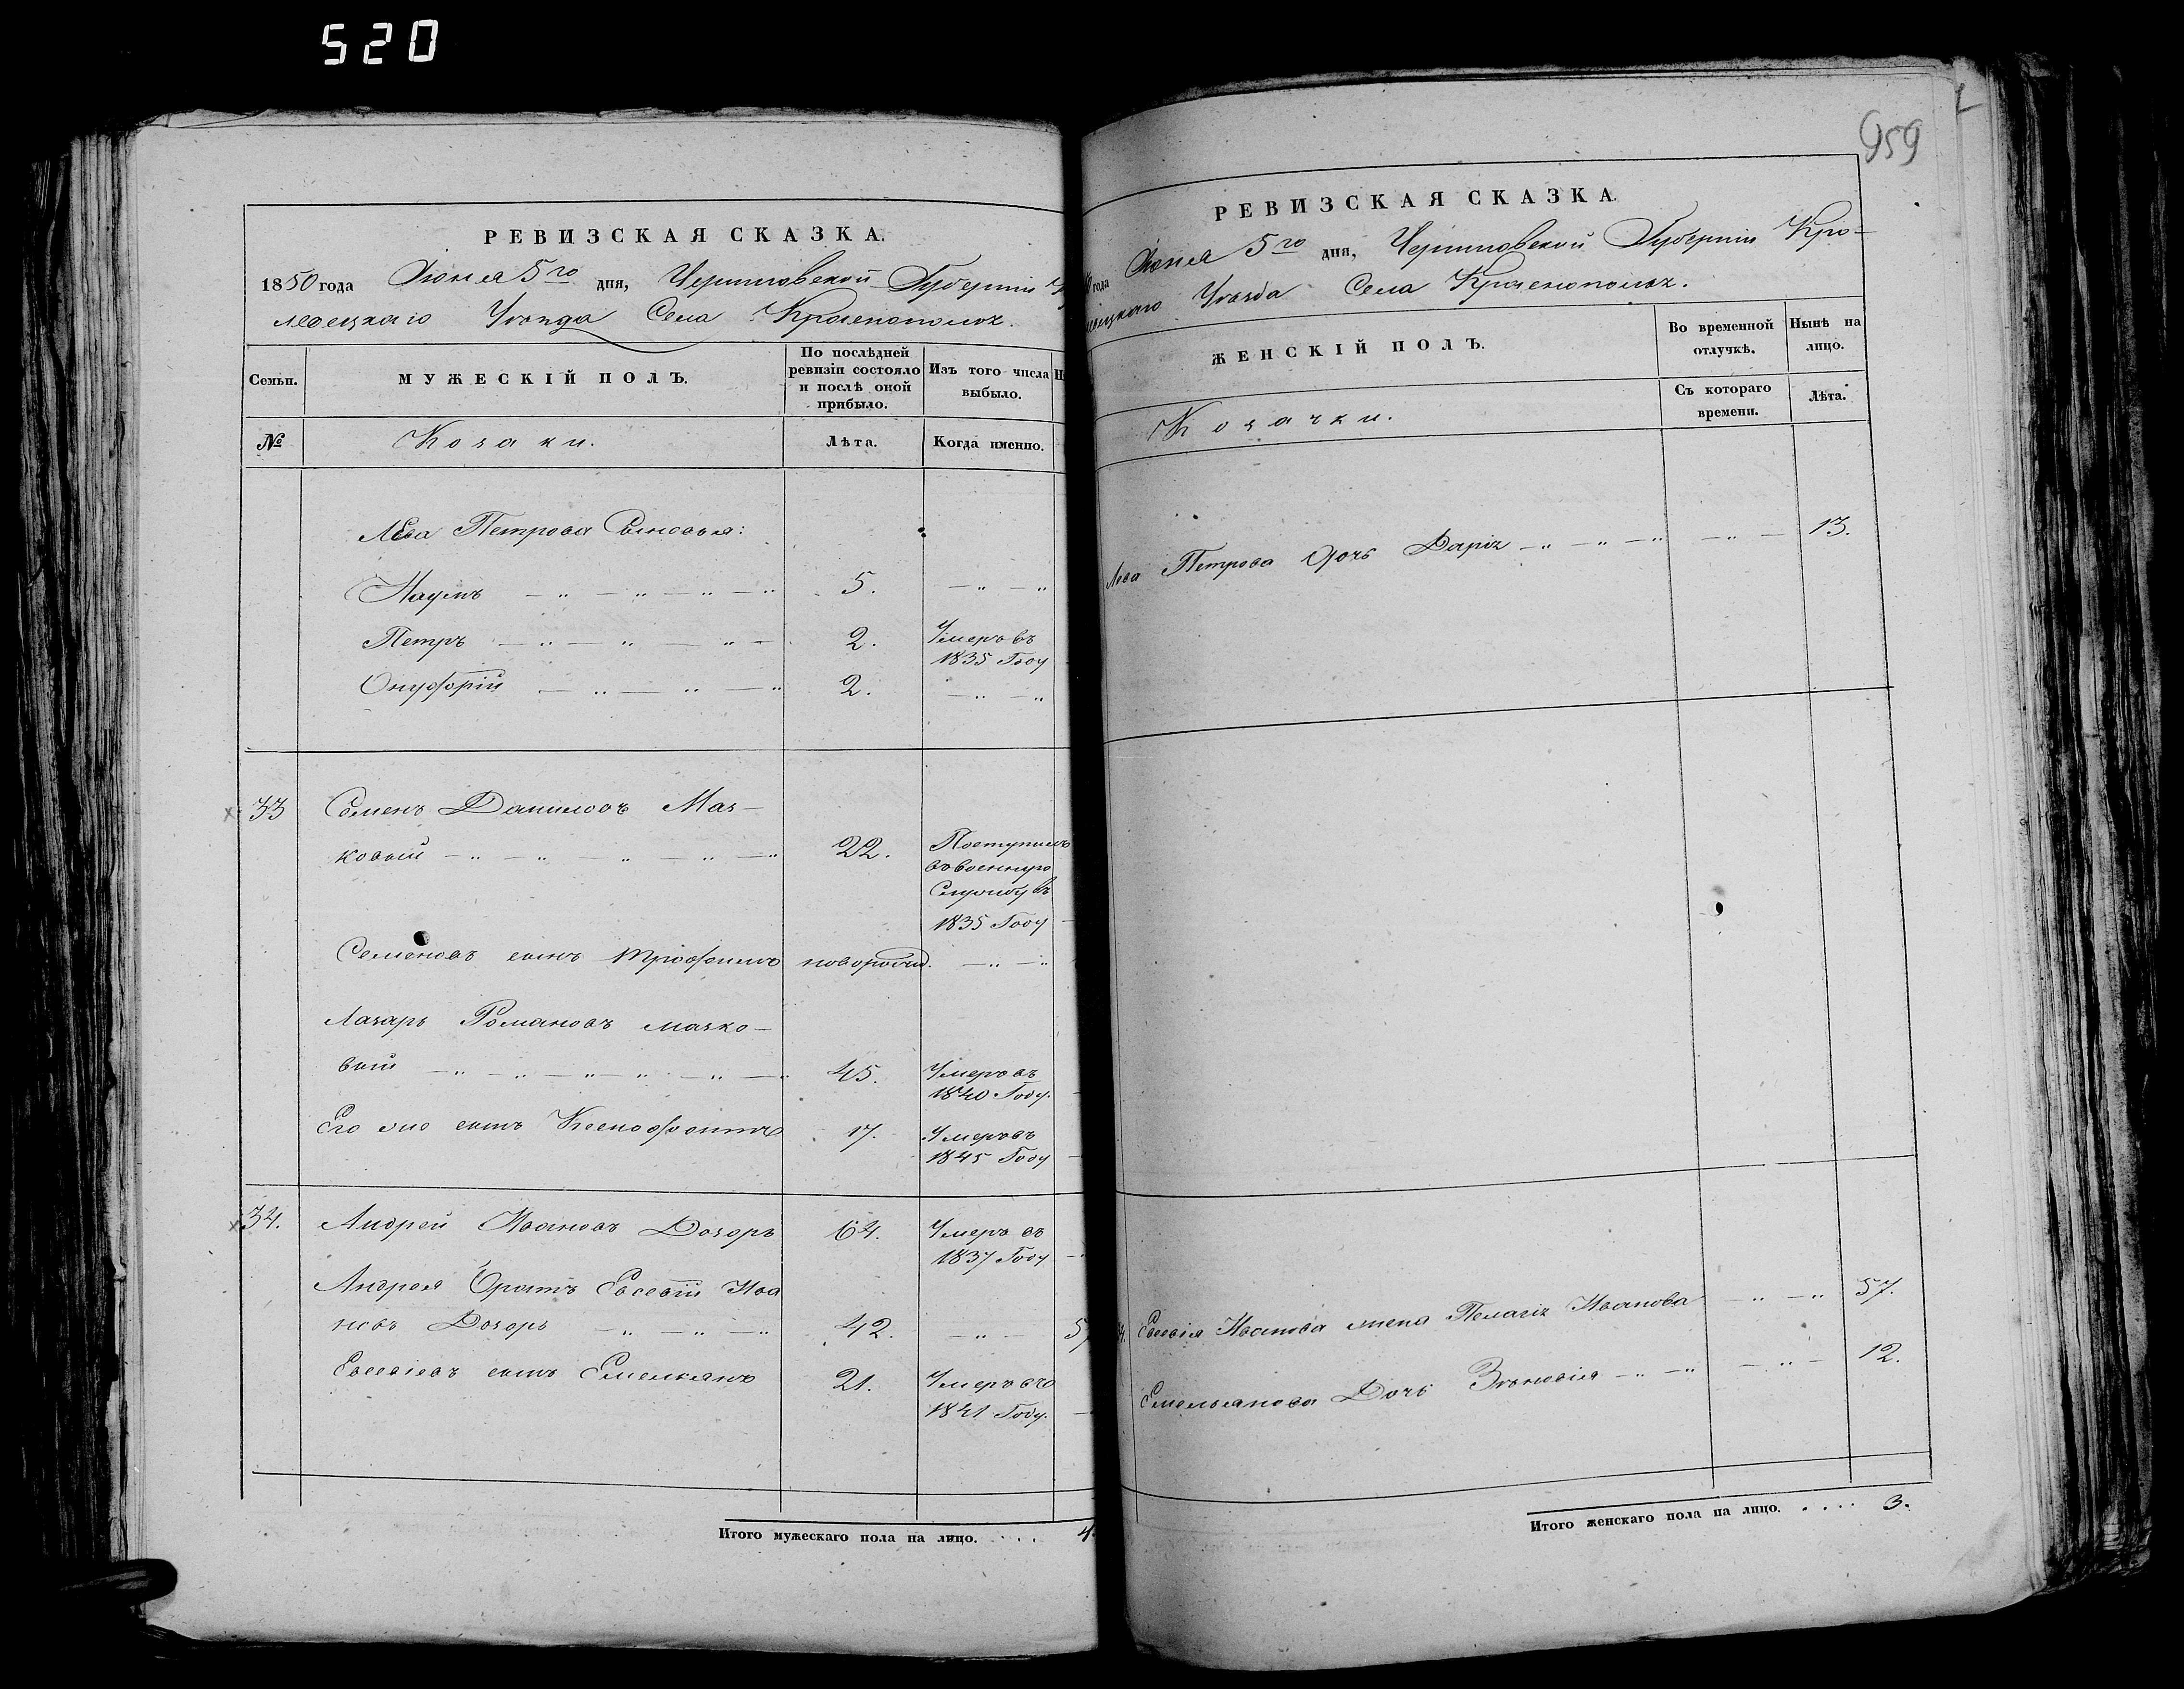 520
959
РЕВИЗСКАЯ СКАЗКА.
1850 года Июня 5го дня, Черниговской Губернии
левецкаго Уезда Села Красенополя.
Семьи.
МУЖЕСКІЙ ПОЛЪ.
По послѣдней ревизіи состояло и послѣ оной прибыло.
Изъ того числа выбыло.
№
Козаки.
Лѣта.
Когда именно.
Лева Петрова Сыновья:
Наумъ — „ — „ — „ — „ 5. — „ — „
Петръ — „ — „ — „ — 2. Умеръ въ
1835 Году
Онуфрій — „ — „ — „ 2. — „ — „
33 Семенъ Даниловъ Маз-
ковый — „ — „ „ — „ — „ 22. Поступилъ
въ военную
Службу въ
1835 Году
Семеновъ сынъ Трофимъ новорожд. — „ — „
Лазарь Романовъ мазко-
вый — „ — „ — „ — „ — „ — 45. Умеръ въ
1840 Году.
Его же сынъ Ксенофонтъ 17. Умеръ въ
1845 Году
34. Андрей Ивановъ Дозоръ 64. Умеръ въ
1837 Году
Андрея братъ Евсевій Ива
новъ Дозоръ — „ — „ — „ 42. — „ —
Евсевіевъ сынъ Емельянъ 21. Умеръ въ
1841 Году.
Итого мужескаго пола на лицо. . . . . 4.
РЕВИЗСКАЯ СКАЗКА.
года Июня 5го дня, Черниговской Губерніи Кро-
левецкаго Уезда Села Красенополя.
ЖЕНСКІЙ ПОЛЪ.
Во временной отлучкѣ.
Нынѣ на лицо.
Съ котораго времени.
Лѣта.
Козачки.
Лева Петрова Дочь Дарія — „ — „ — „ — „ — 13.
Евсевія Иванова жена Пелагія Иванова — „ — „ 57.
Емельянова Дочь Зѣновія — „ — „ — „ — 12.
Итого женскаго пола на лицо. . . . . 3.